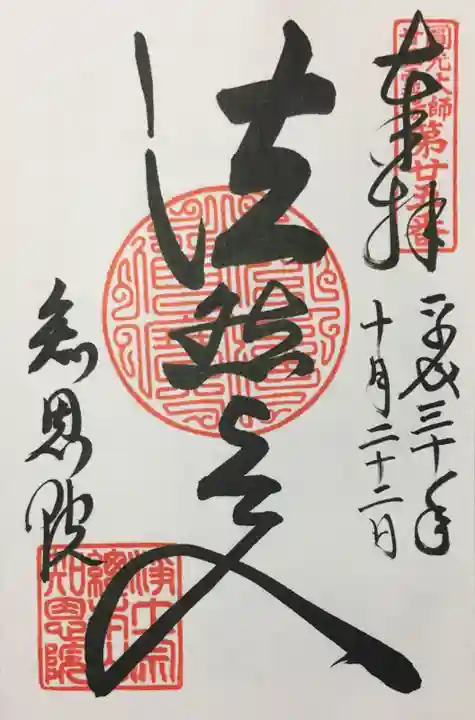 圓光大師
廿五霊場
第廿五番
奉拝
平成三十年
十月二十二日
法然上人
知恩院
浄土宗
總本山
知恩院